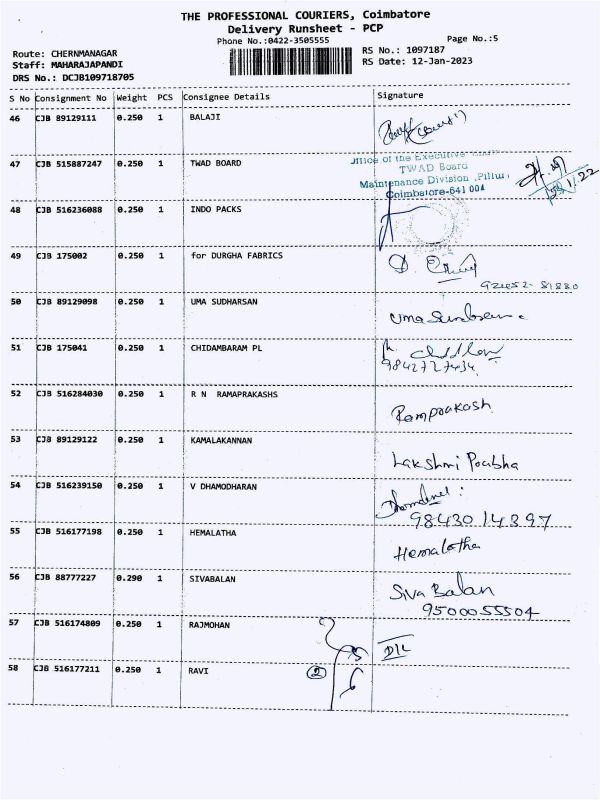 THE PROFESSIONAL COURIERS, Coimbatore
Delivery Runsheet - PCP
Phone No.:0422-3505555
Page No.:5
Route: CHERNMANAGAR
RS No.: 1097187
Staff: MAHARAJAPANDI
RS Date: 12-Jan-2023
DRS No.: DCJB109718705
S No Consignment No Weight PCS Consignee Details Signature
46 CJB 89129111 0.250 1 BALAJI
47 CJB 515887247 0.250 1 TWAD BOARD
Office of the Executive
TWAD Board
Maintenance Division
Coimbatore-641 004
48 CJB 516236088 0.250 1 INDO PACKS
49 CJB 175002 0.250 1 for DURGHA FABRICS
50 CJB 89129098 0.250 1 UMA SUDHARSAN
51 CJB 175041 0.250 1 CHIDAMBARAM PL
9842727434
52 CJB 516284030 0.250 1 R N RAMAPRAKASHS
Ramprakash
53 CJB 89129122 0.250 1 KAMALAKANNAN
Lakshmi Prabha
54 CJB 516239150 0.250 1 V DHAMODHARAN
9843014397
55 CJB 516177198 0.250 1 HEMALATHA
Hemalatha
56 CJB 88777227 0.290 1 SIVABALAN
Siva Balan
9500055504
57 CJB 516174809 0.250 1 RAJMOHAN
58 CJB 516177211 0.250 1 RAVI 2